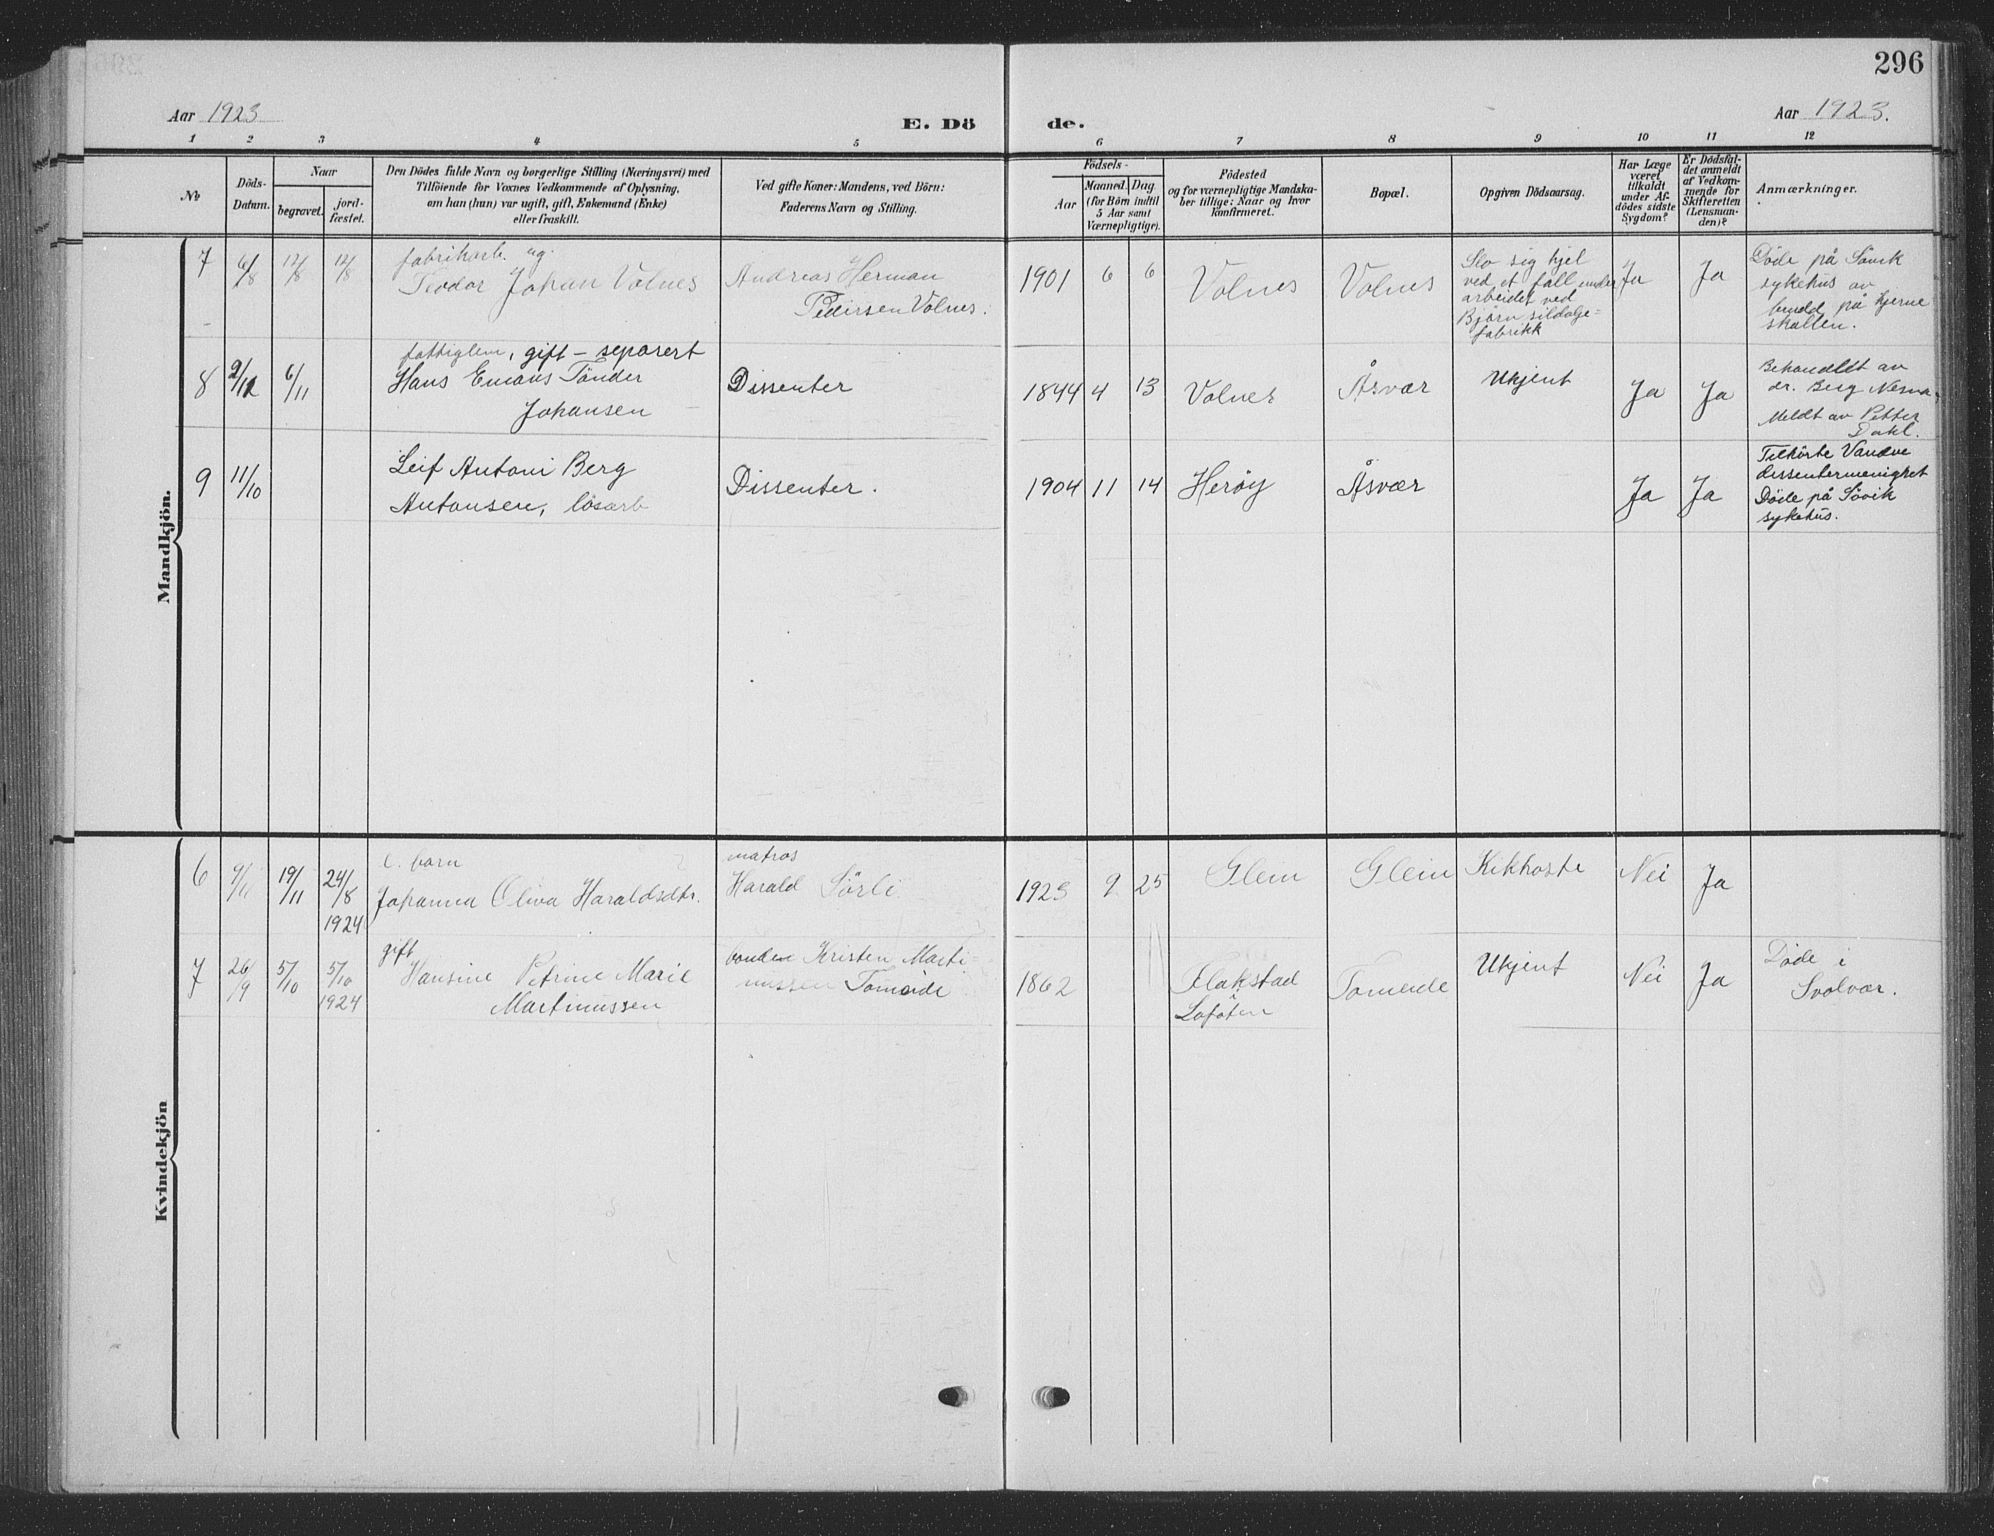 296
Aar 1923
E. Dö
de.
Aar 1923.
1 2 3 4 5 6 7 8 9 10 11 12
No
Döds-
Datum.
Naar
begravet.
jord-
fæstet.
Den Dödes fulde Navn og borgerlige Stilling (Næringsvei) med
Tilföiende for Voxnes Vedkommende af Oplysning,
om han (hun) var ugift, gift, Enkemand (Enke)
eller fraskilt.
Ved gifte Koner: Mandens, ved Börn:
Faderens Navn og Stilling.
Födsels-
Aar
Maaned. Dag
(for Börn indtil
5 Aar samt
Værnepligtige).
Födested
og for værnepligtige Mandska-
ber tillige: Naar og hvor
konfirmeret.
Bopæl.
Opgiven Dödsaarsag.
Har Læge
været
tilkaldt
under Af-
dödes sidste
Sygdom?
Er Dödsfal-
det anmeldt
af Vedkom-
mende for
Skifteretten
(Lensman-
den)?
Anmærkninger.
Mandkjön.
7 6/8 12/8 12/8
fabrikarb. ug.
Teodor Johan Volnes
Andreas Herman
Pedersen Volnes.
1901 6 6
Volnes
Volnes
Slo sig hjel
ved et fall under
arbeidet ved
Björn sildolje=
fabrikk
Ja
Ja
Döde på Sövik
sykehus av
brudd på hjerne
skallen.
8 2/11 6/11
fattiglem, gift – separert
Hans Emans Tönder
Johansen
Dissenter
1844 4 13
Volnes
Åsvær
Ukjent
Ja
Ja
Behandlet av
dr. Berg Nesna.
Meldt av Petter
Dahl.
9 11/10
Leif Antoni Berg
Antonsen, lösarb
Dissenter.
1904 11 14
Heröy
Åsvær
Ja
Ja
Tilhörte Vandve
dissentermenighet
Döde på Sövik
sykehus.
Kvindekjön
6 9/11 19/11 24/8
1924
e. barn
Johanna Oliva Haraldsdtr.
matros
Harald Sörli
1923 9 25
Glein
Glein
Kikhoste
Nei
Ja
7 26/9 5/10 5/10
1924
gift
Hansine Petrine Marie
Martinussen
bonden Kristen Marti=
nussen Tomeide
1862
Flakstad
Lofoten
Tomeide
Ukjent
Nei
Ja
Döde i
Svolvær.